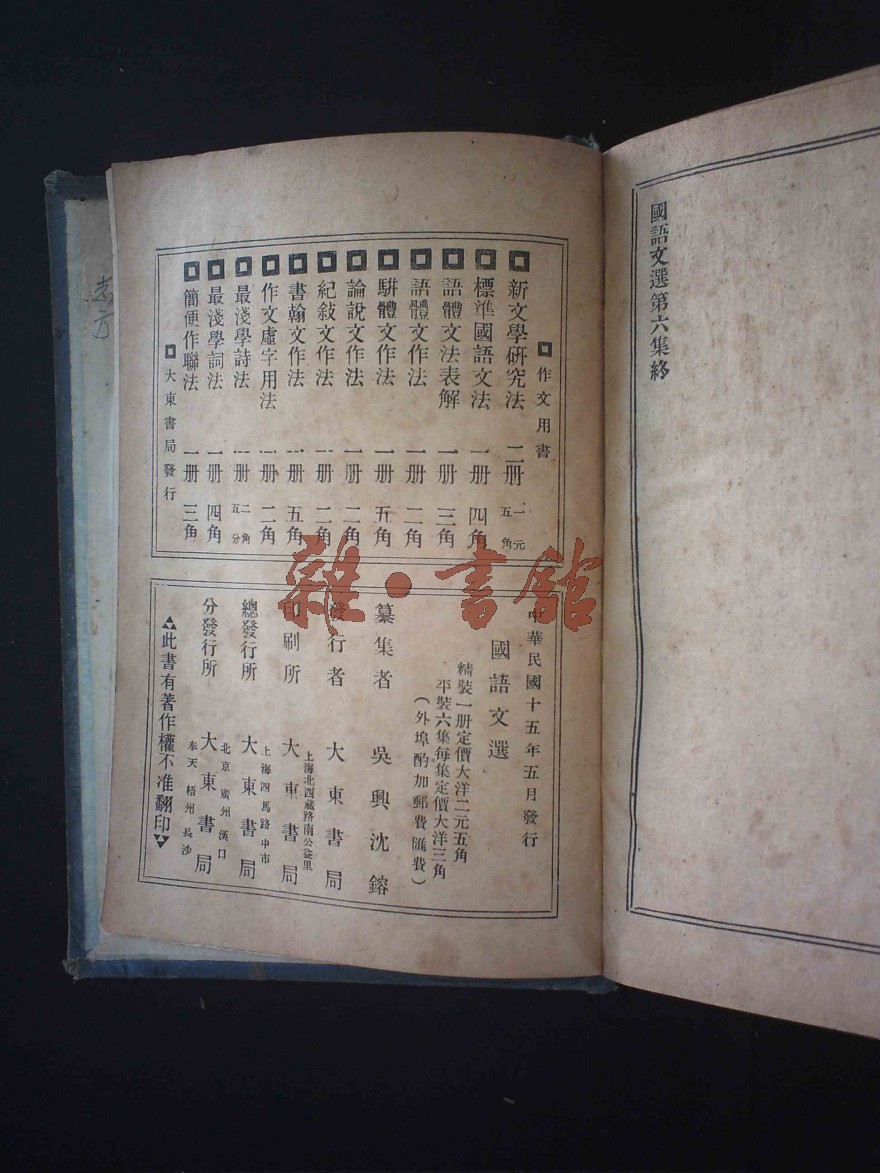 國語文選第六集終
作文用書
新文學研究法 二册 一元五角
標準國語文法 一册 四角
語體文法表解 一册 三角
語體文作法 一册 二角
駢體文作法 一册 五角
論說文作法 一册 二角
紀敍文作法 一册 二角
書翰文作法 一册 五角
作文虛字用法 一册 二角
最淺學詩法 一册 二角五分
最淺學詞法 一册 四角
簡便作聯法 一册 三角
大東書局發行
中華民國十五年五月發行
國語文選
精裝一册定價大洋二元五角
平裝六集每集定價大洋三角
(外埠酌加郵費匯費)
纂集者 吳興沈鎔
發行者 大東書局
上海北西藏路南公益里
印刷所 大東書局
上海四馬路中市
總發行所 大東書局
北京 廣州 漢口
分發行所 大東書局
奉天 梧州 長沙
此書有著作權不准翻印
雜·書館